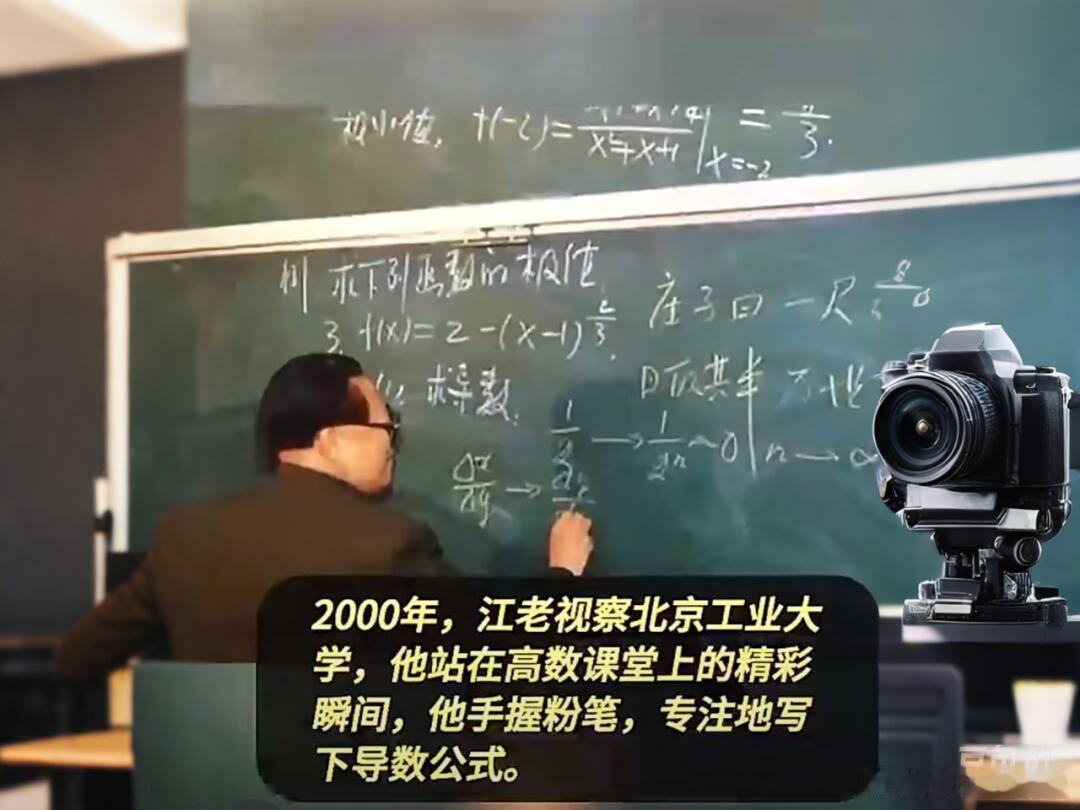 极小值, f(-2)= x²+x+1 |x=-2 = 3.
例 求下列函数的极值
3. f(x)=2-(x-1)^2/3.
求导数.
庄子曰 一尺
日取其半 万世
1/2 → 1/2ⁿ → 0 | n → ∞
Δx/Δy →
2000年，江老视察北京工业大
学，他站在高数课堂上的精彩
瞬间，他手握粉笔，专注地写
下导数公式。